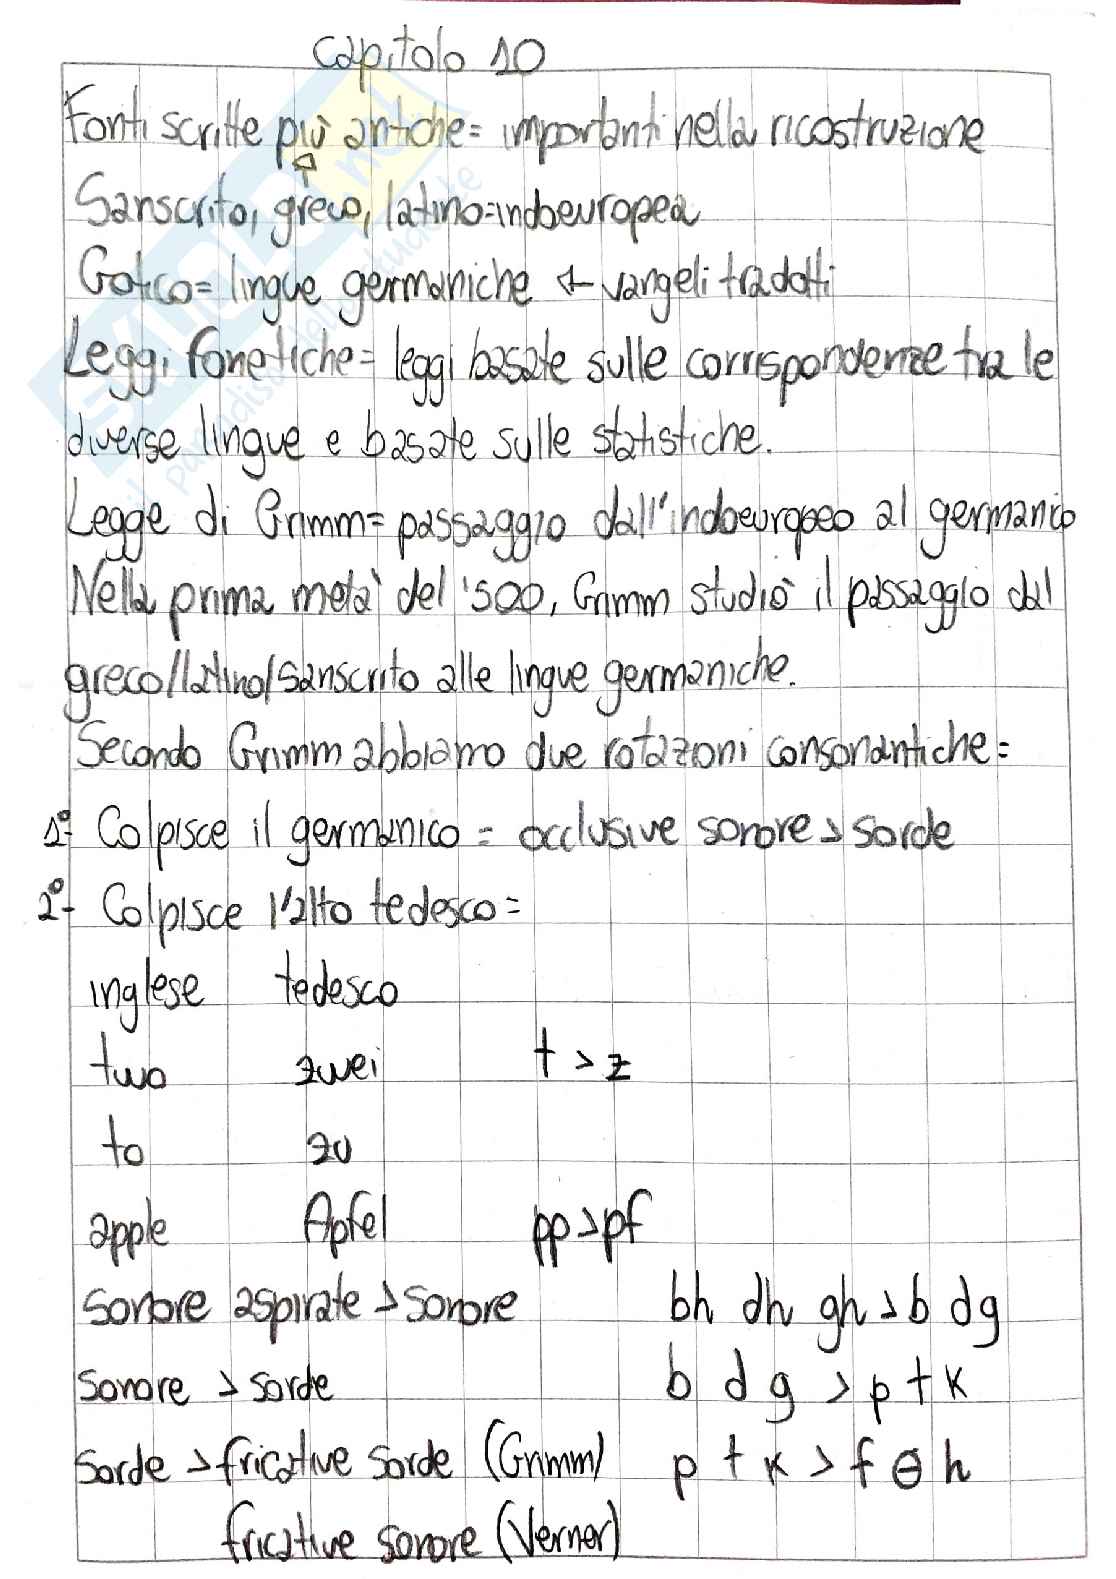 Capitolo 10
Fonti scritte più antiche = importanti nella ricostruzione
Sanscrito, greco, latino = indoeuropea
Gotico = lingue germaniche ← vangeli tradotti
Leggi fonetiche = leggi basate sulle corrispondenze tra le
diverse lingue e basate sulle statistiche.
Legge di Grimm = passaggio dall'indoeuropeo al germanico
Nella prima metà del '500, Grimm studiò il passaggio dal
greco/latino/sanscrito alle lingue germaniche.
Secondo Grimm abbiamo due rotazioni consonantiche =
1°- Colpisce il germanico = occlusive sonore > sorde
2°- Colpisce l'alto tedesco =
inglese tedesco
two zwei t > z
to zu
apple Apfel pp > pf
sonore aspirate > sonore bh dh gh > b d g
sonore > sorde b d g > p t k
sorde > fricative sorde (Grimm) p t k > f θ h
fricative sonore (Verner)